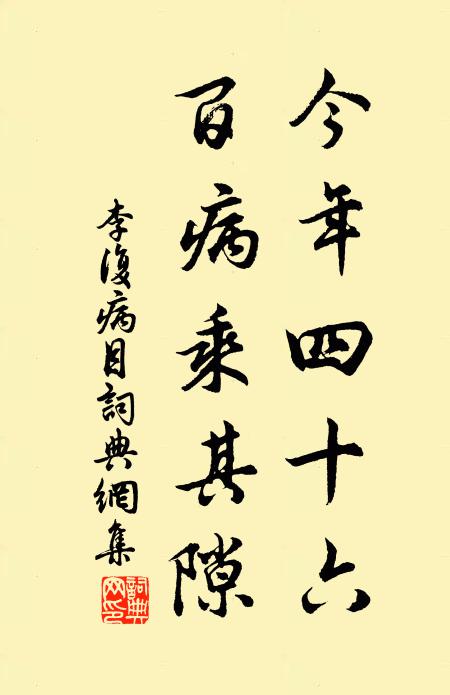 今年四十六
百病乘其隙
李復病目詞典網集
詞典网印